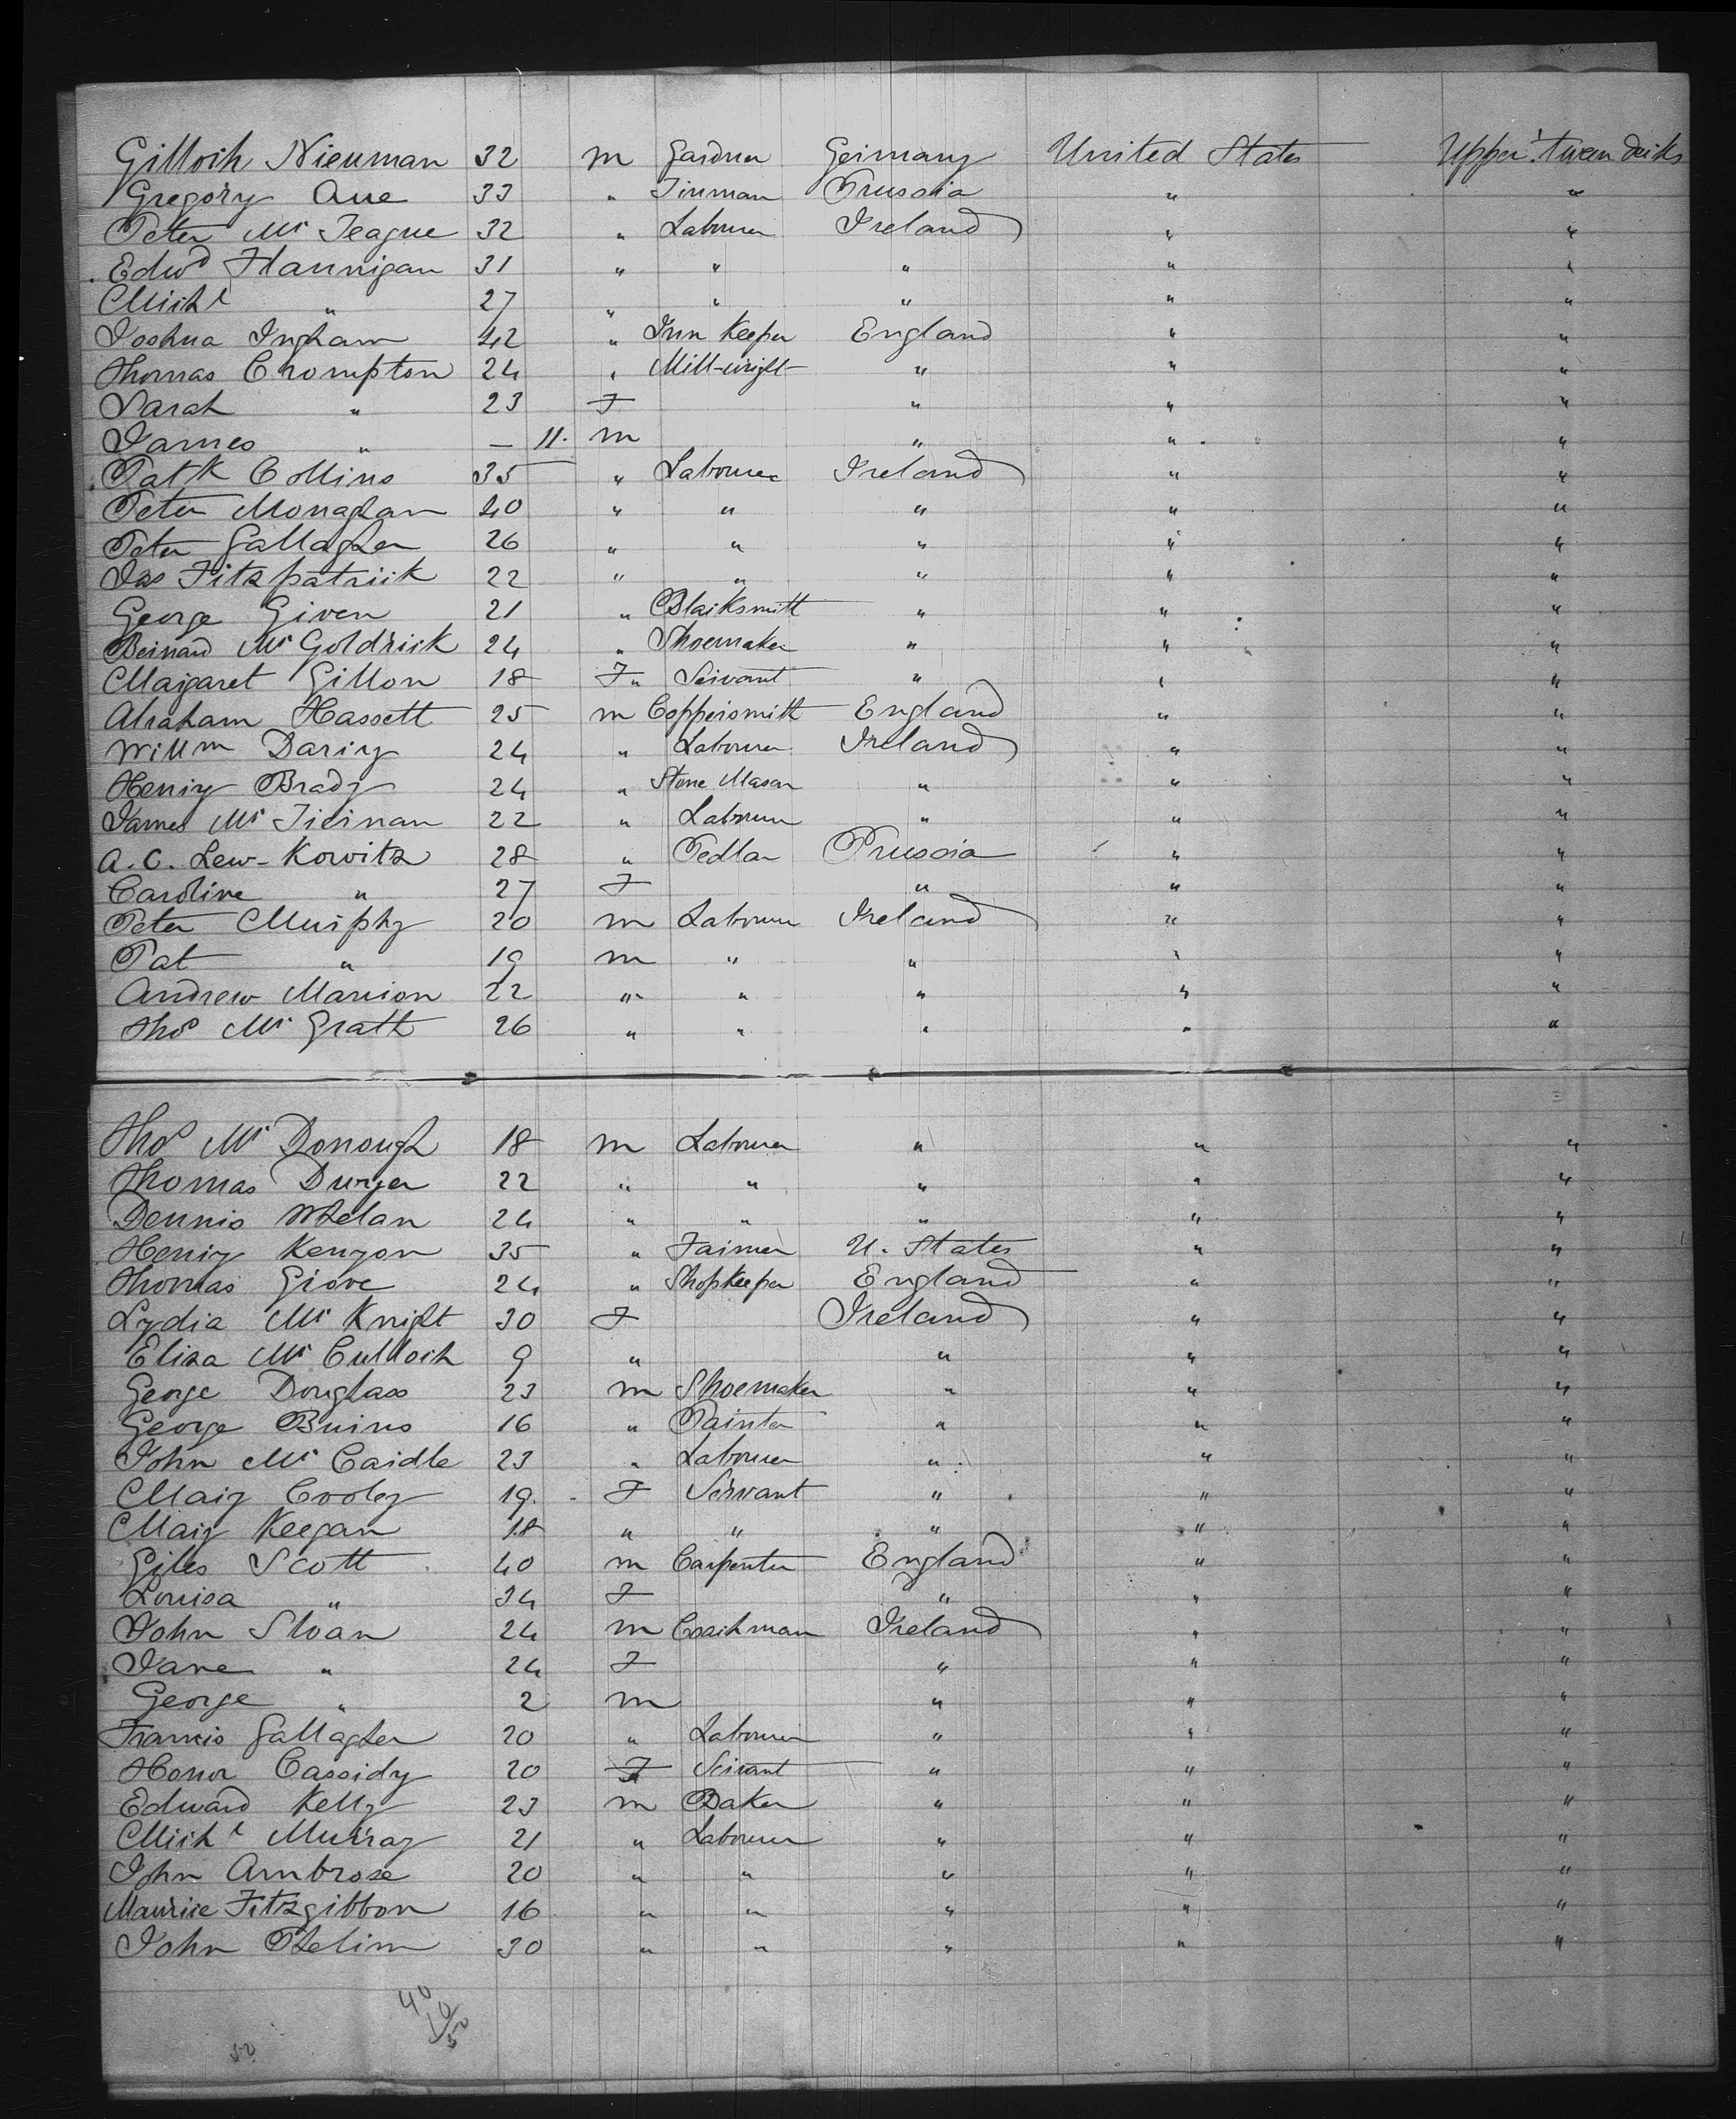 Gilloch Nieuman 32 m Gardner Germany United States Upper 'tween decks
Gregory Aue 33 " Tinman Prussia " "
Peter Mc Teague 32 " Labourer Ireland " "
Edwd Flannigan 31 " " " " "
Michl " 27 " " " " "
Joshua Ingham 42 " Inn Keeper England " "
Thomas Crompton 24 " Mill-wright " " "
Sarah " 23 F " " "
James " — 11. m " " "
Patk Collins 35 " Labourer Ireland " "
Peter Monaghan 40 " " " " "
Peter Gallagher 26 " " " " "
Jas Fitzpatrick 22 " " " " "
George Given 21 " Blacksmith " " "
Bernard Mc Goldrick 24 " Shoemaker " " "
Margaret Gillon 18 F " Servant " " "
Abraham Hassett 25 m Coppersmith England " "
Willm Dariry 24 " Labourer Ireland " "
Henry Brady 24 " Stone Mason " " "
James Mc Tiernan 22 " Labourer " " "
A. C. Lew-Kowitz 28 " Pedlar Prussia " "
Caroline " 27 F " " "
Peter Murphy 20 m Labourer Ireland " "
Pat " 19 m " " " "
Andrew Manion 22 " " " " "
Thos Mc Grath 26 " " " " "
Thos Mc Donough 18 m Labourer " " "
Thomas Dwyer 22 " " " " "
Dennis Whelan 24 " " " " "
Henry Kenyon 35 " Farmer U. States " "
Thomas Grove 24 " Shopkeeper England " "
Lydia Mc Knight 30 F Ireland " "
Eliza Mc Culloch 9 " " " "
George Douglass 23 m Shoemaker " " "
George Burns 16 " Painter " " "
John Mc Cardle 23 " Labourer " " "
Mary Cooley 19. F Servant " " "
Mary Keegan 18 " " " " "
Giles Scott 40 m Carpenter England " "
Louisa " 34 F " " "
John Sloan 24 m Coachman Ireland " "
Jane " 24 F " " "
George " 2 m " " "
Francis Gallagher 20 " Labourer " " "
Honor Cassidy 20 F Servant " " "
Edward Kelly 23 m Baker " " "
Michl Murray 21 " Labourer " " "
John Ambrose 20 " " " " "
Maurice Fitzgibbon 16 " " " " "
John Phelim 30 " " " " "
40
10
50
50